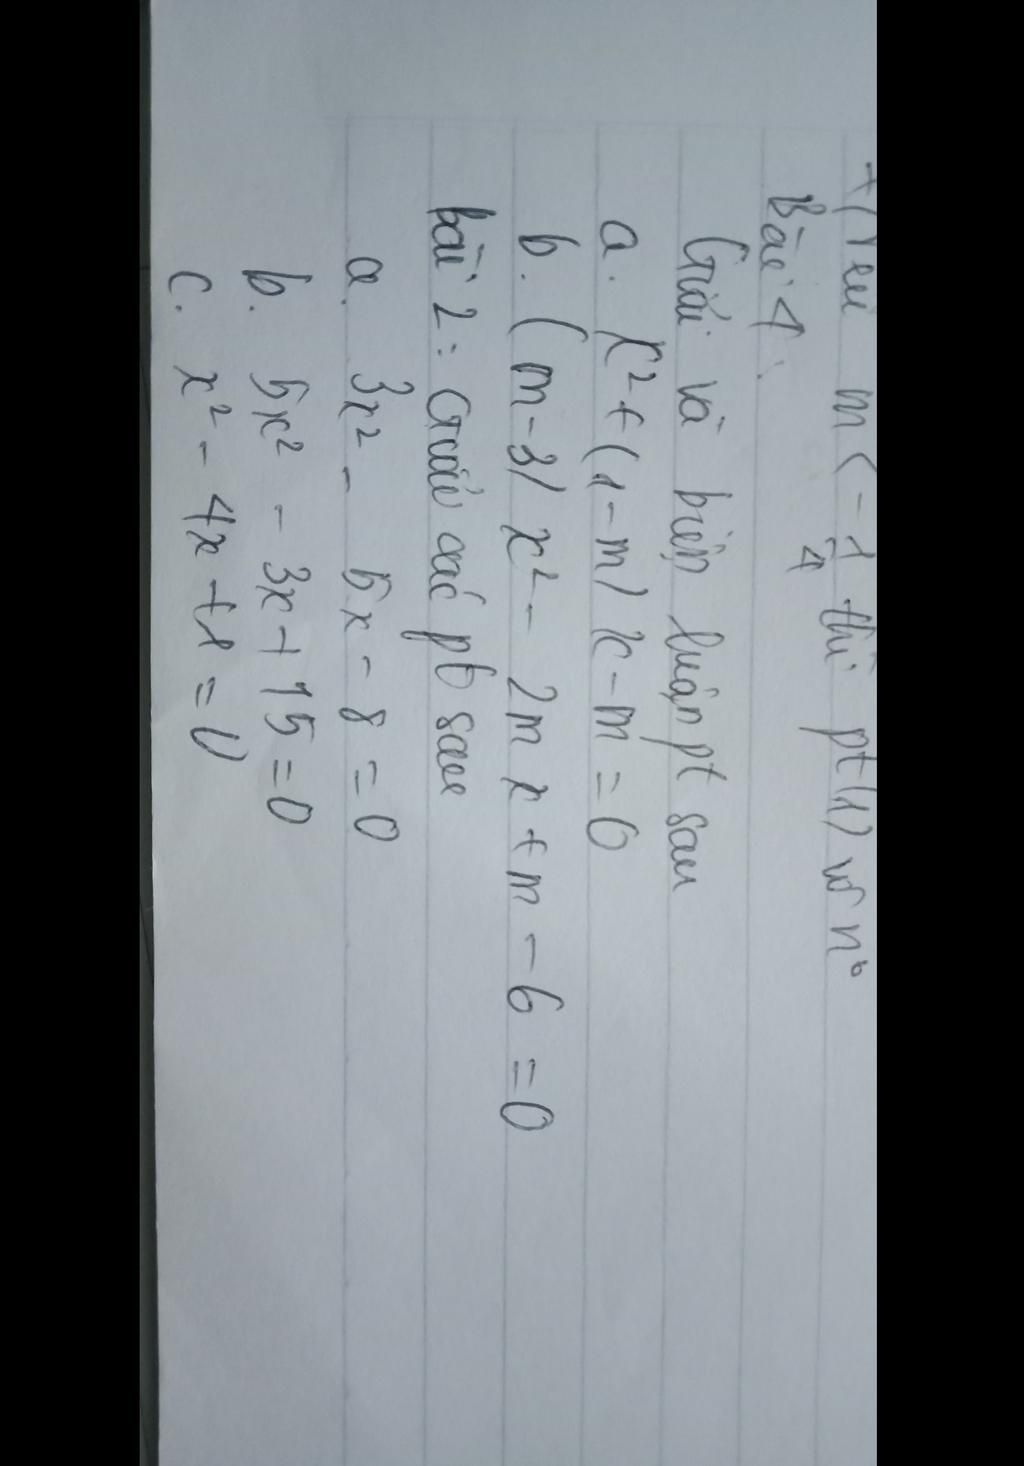 +) Nếu m < -1/4 thì pt(1) vô nº
Bài 1:
Giải và biện luận pt sau
a. x² + (1-m) x - m = 0
b. (m-3) x² - 2m x + m - 6 = 0
bài 2: Giải các pt sau
a. 3x² - 5x - 8 = 0
b. 5x² - 3x + 15 = 0
c. x² - 4x + 1 = 0